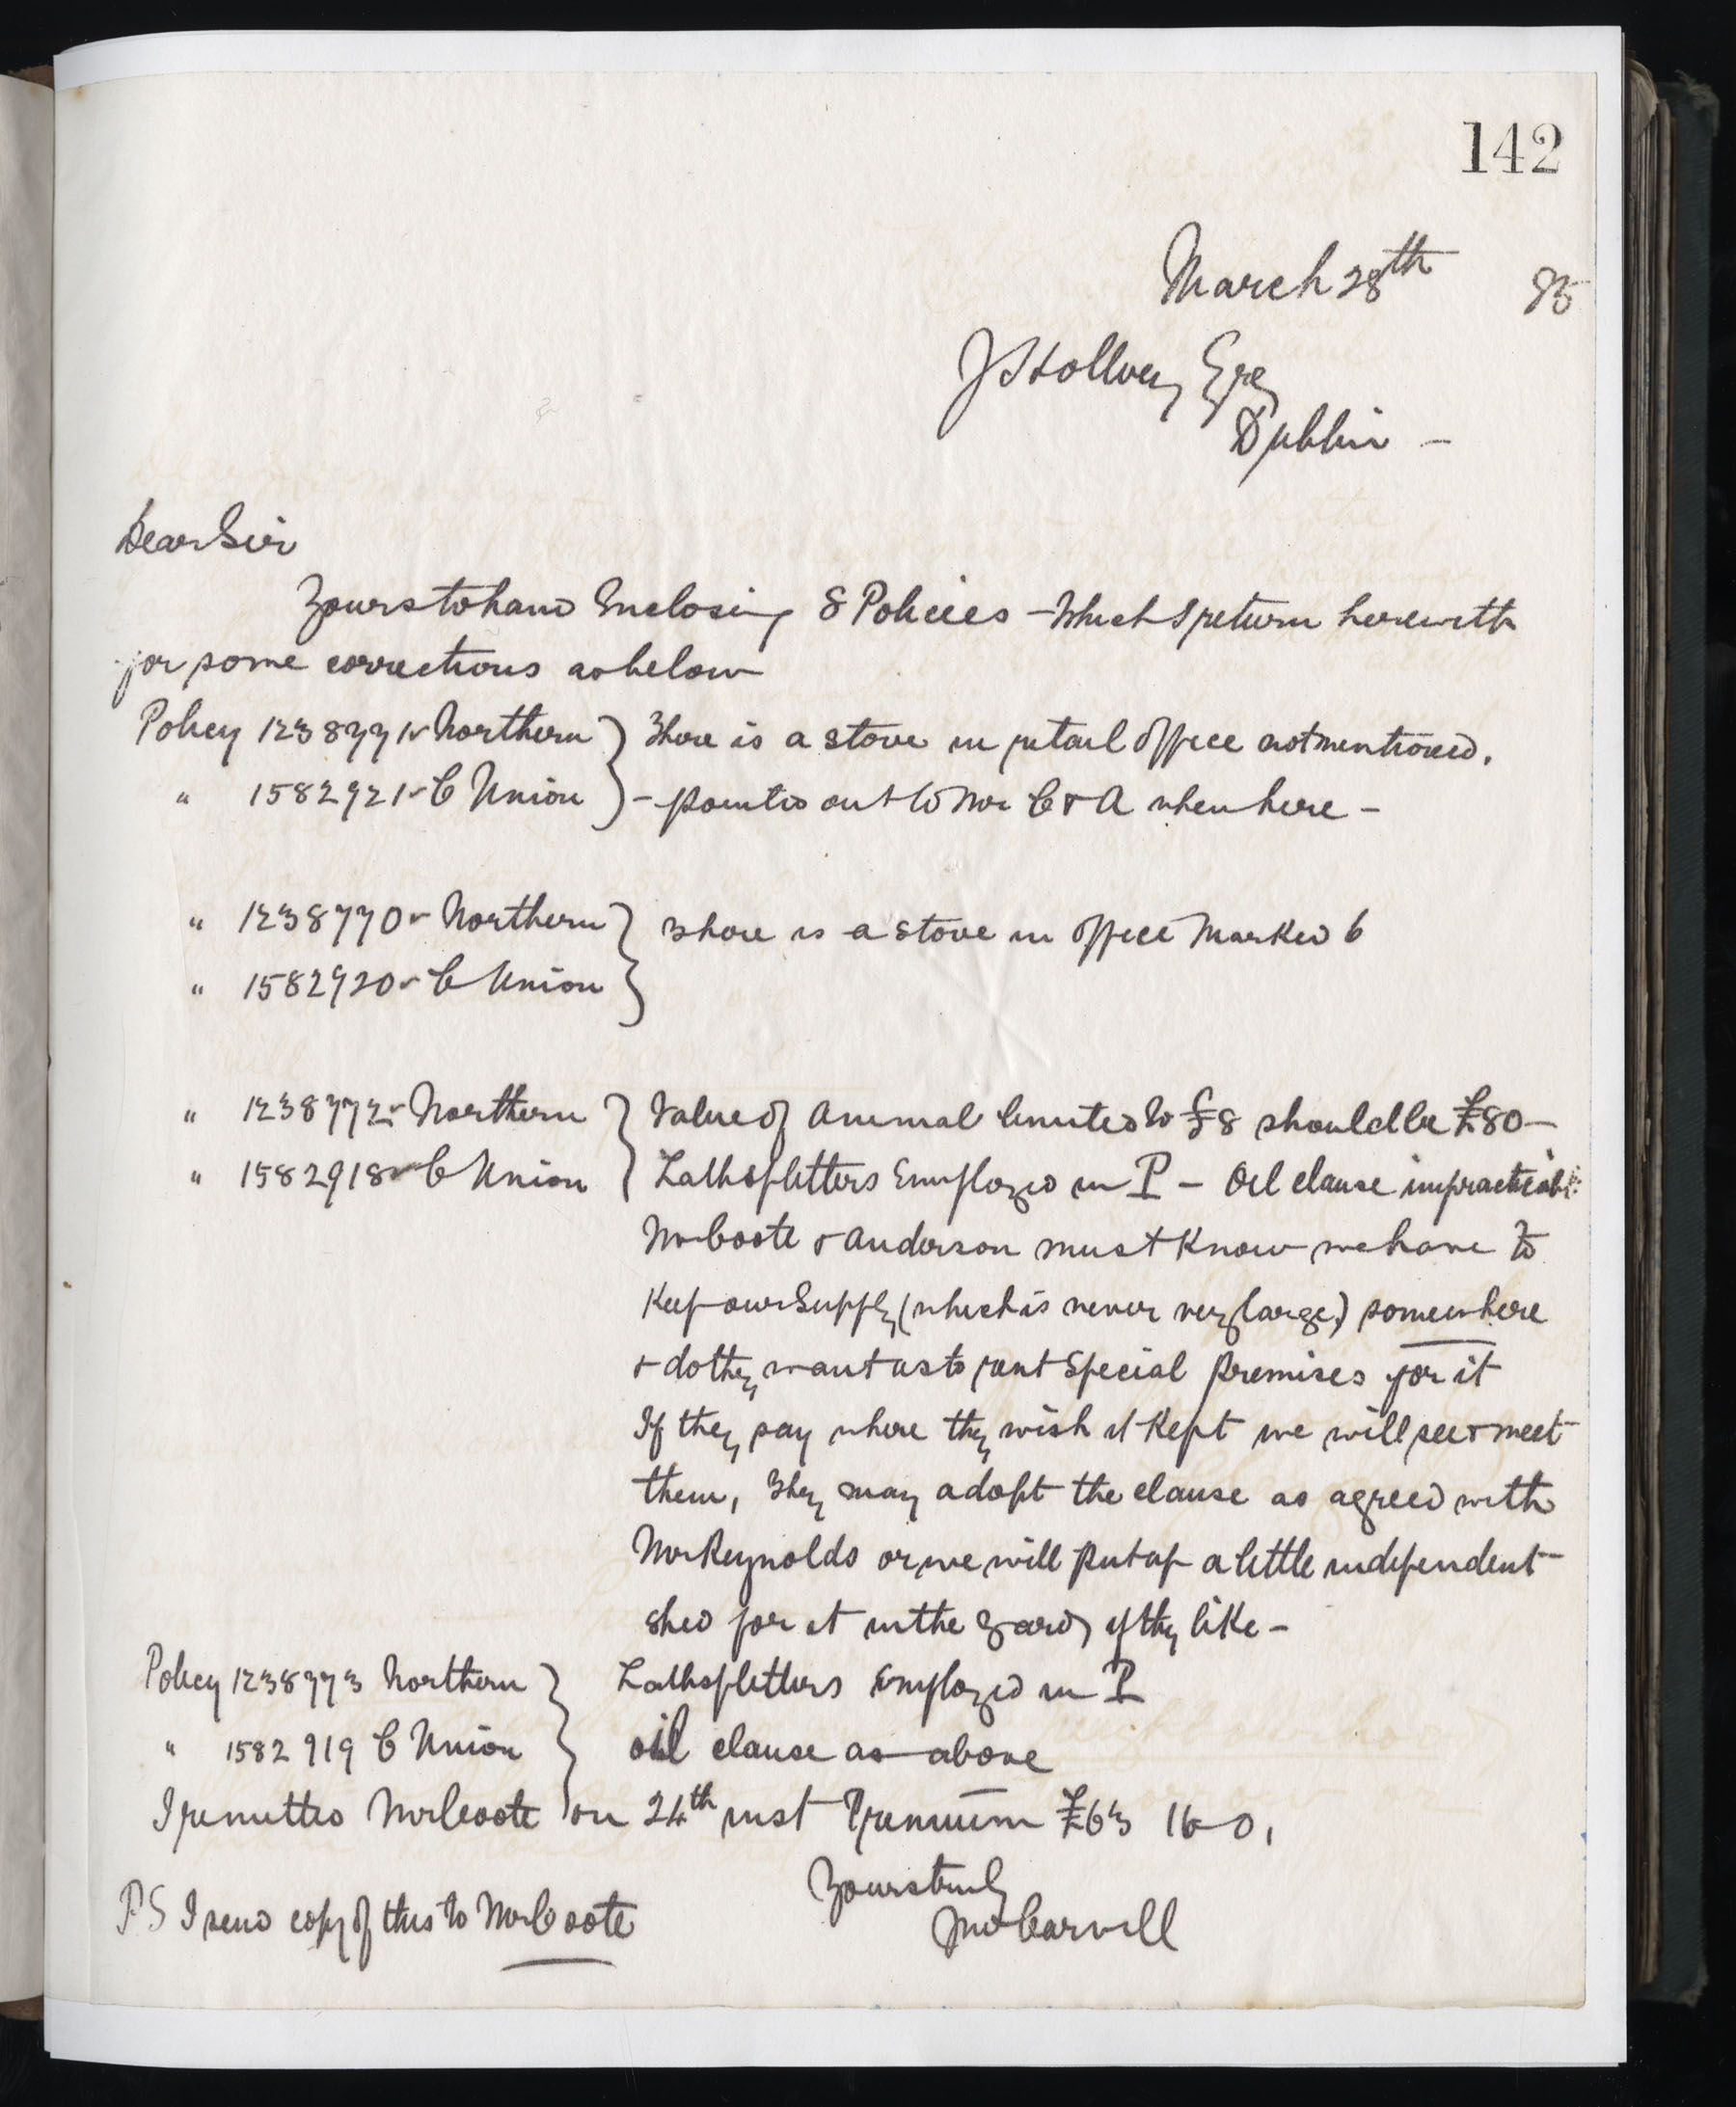 142
March 28th 95
J Hollwey Esqe
Dublin -
Dear Sir
Yours to hand Enclosing 8 Policies - Which I return herewith
for some corrections as below
Policy 1238771 Northern } There is a stove in retail office not mentioned,
" 1582921 C Union } - pointed out to Mr C & A when here -
" 1238770 Northern } There is a stove in office Marked 6
" 1582920 C Union }
" 1238772 Northern } Value of animal limited to £8 should be £80 -
" 1582918 C Union } Lathsplitters Employed in P - Oil clause impracticable
Mr Coote & Anderson must know we have to
Keep our Supply (which is never very large) somewhere
& do they want us to rent Special premises for it
If they say where they wish it Kept we will see & meet
them, They may adopt the clause as agreed with
Mr Reynolds or we will put up a little independent
shed for it in the yard if they like -
Policy 1238773 Northern } Lathsplitters Employed in P
" 1582919 C Union } oil clause as above
I remitted Mr Coote on 24th inst Premium £63 16-0,
Yours truly
PS I send copy of this to Mr Coote
Jno Carvill